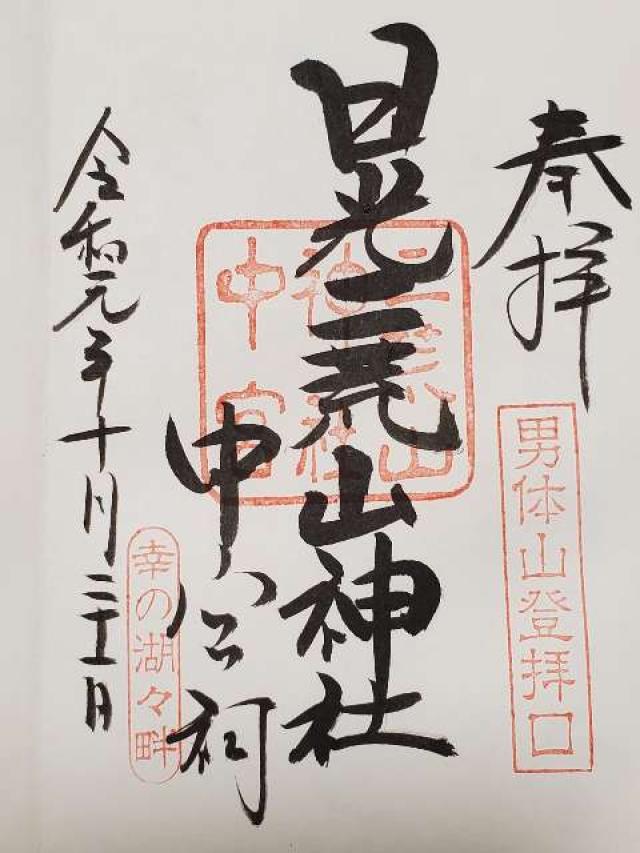 奉拝
男体山登拝口
日光二荒山神社
二荒山
神社
中宮
中宮祠
幸の湖々畔
令和元年十月三十一日